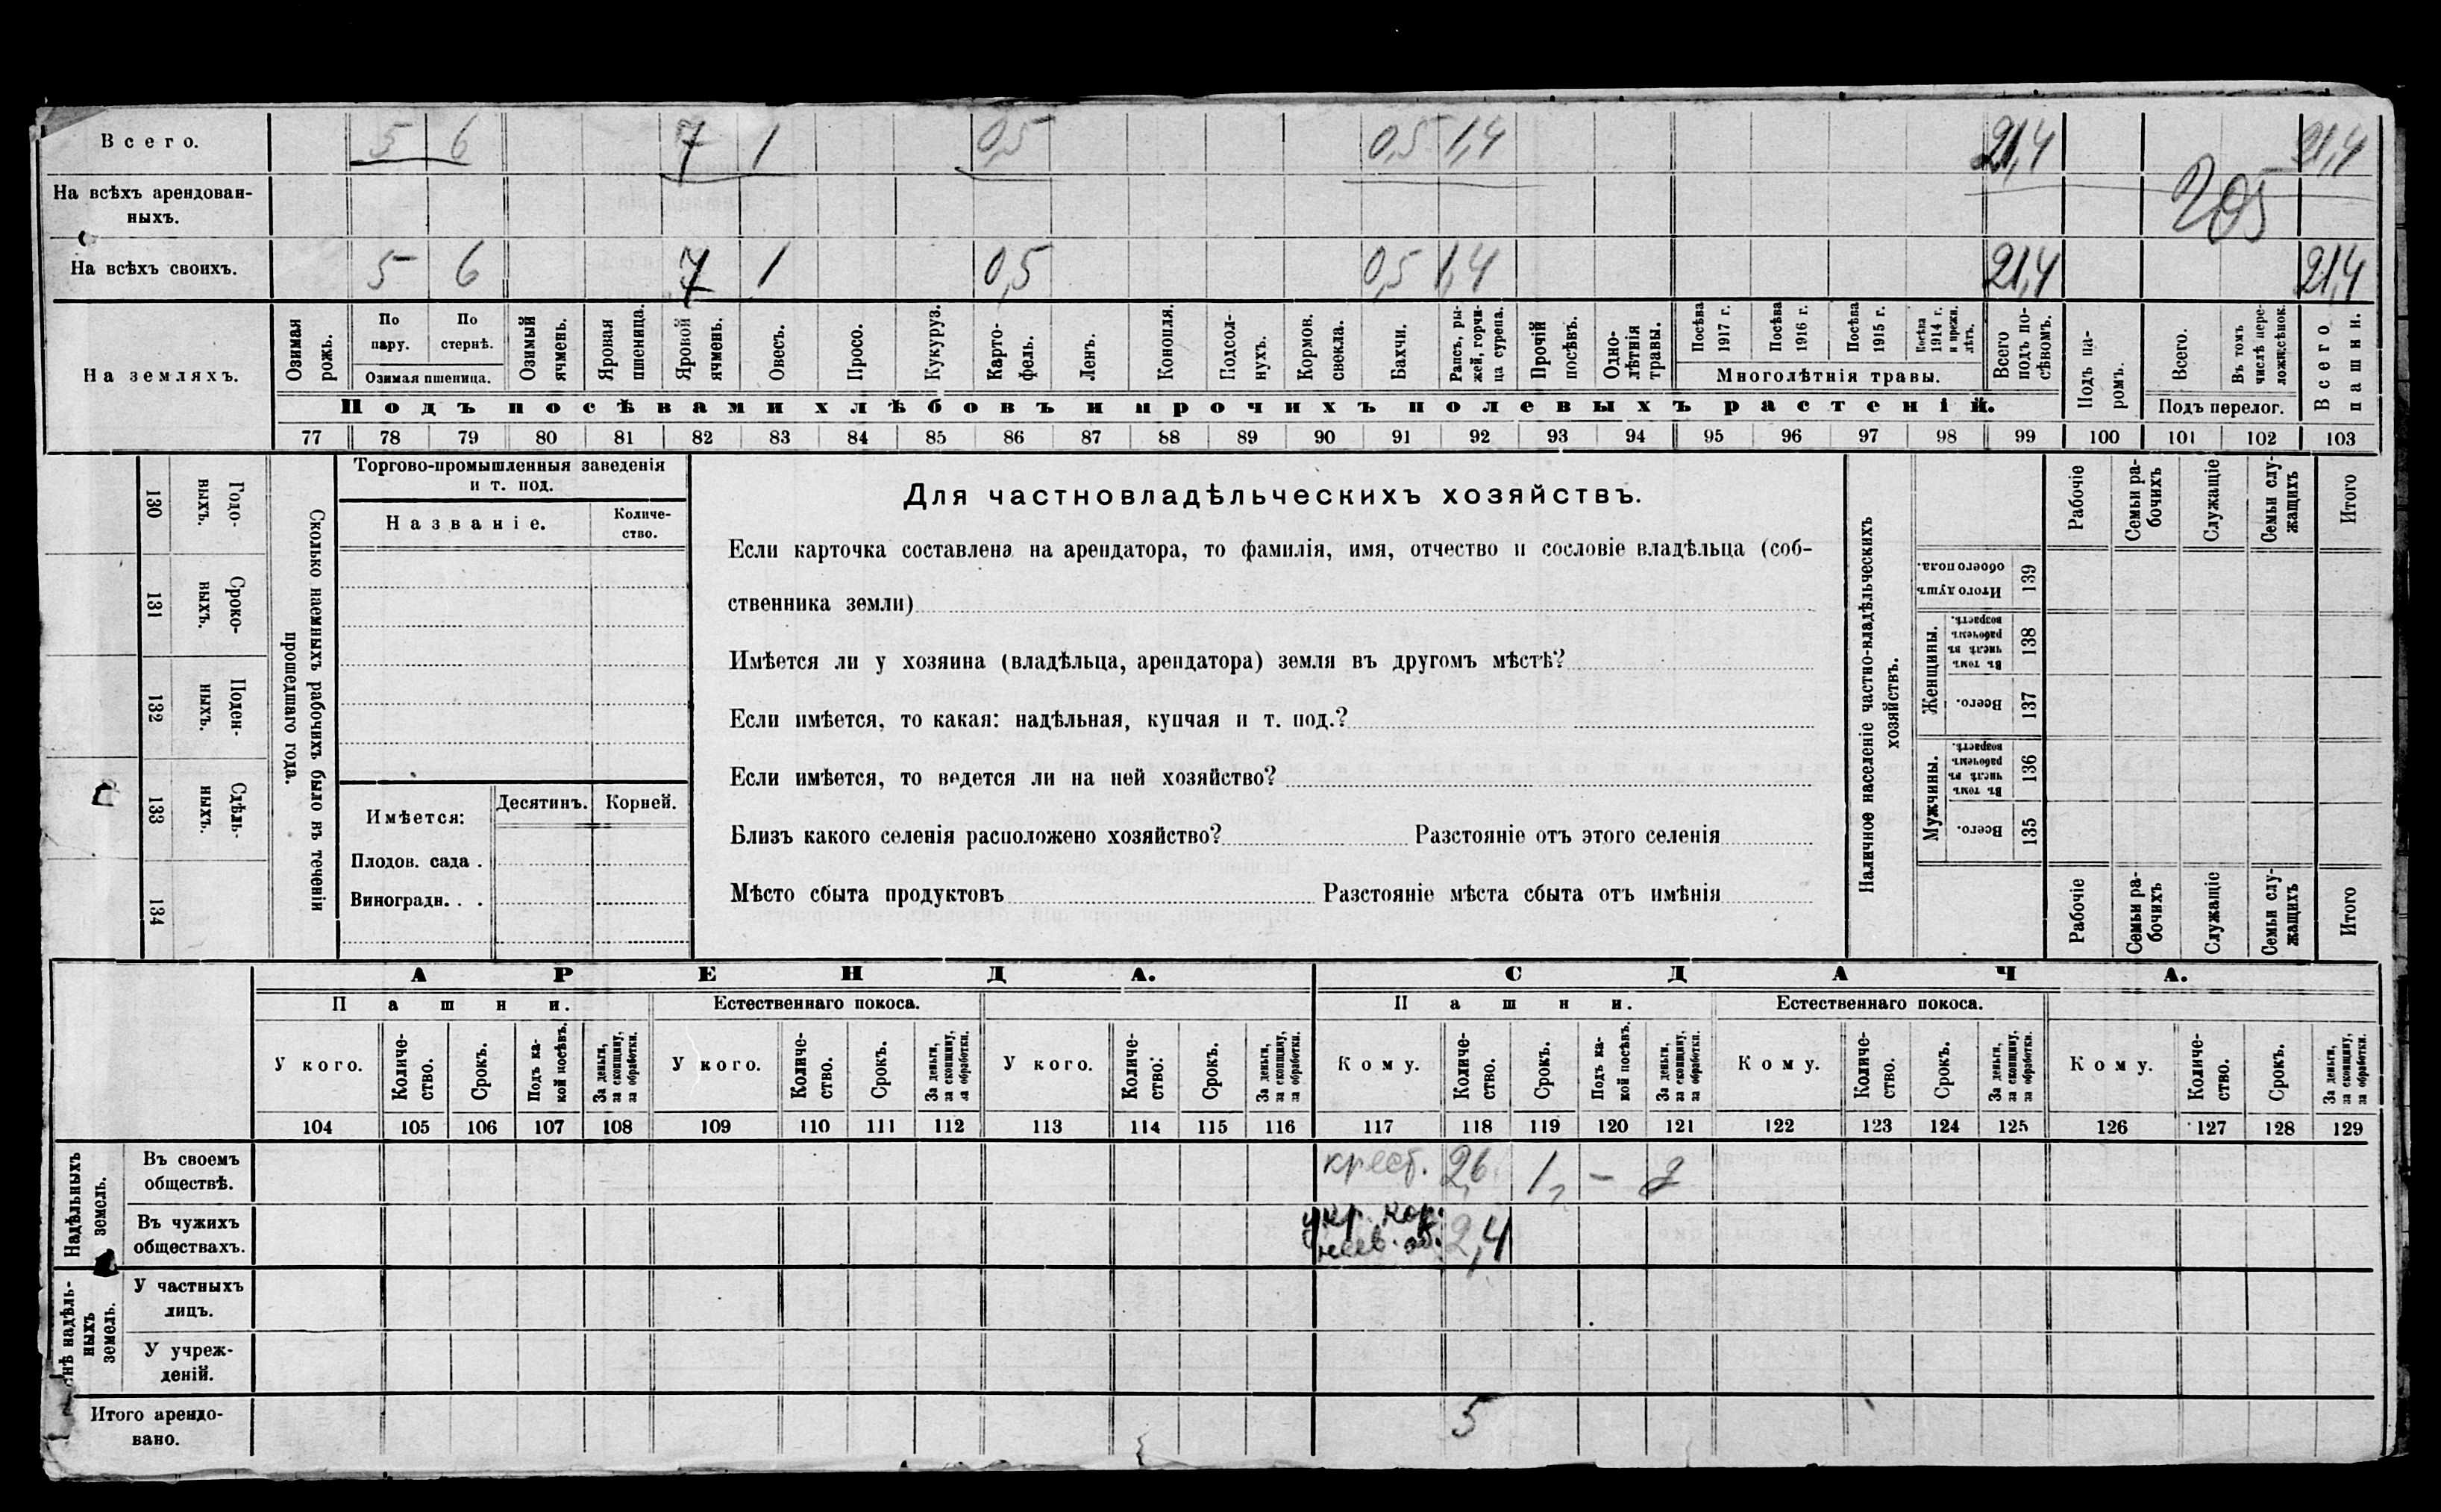 Всего. 5 6 7 1 0,5 0,5 1,4 21,4 21,4
На всѣхъ арендован-
ныхъ.
205
На всѣхъ своихъ. 5 6 7 1 0,5 0,5 1,4 21,4 21,4
На земляхъ.
Озимая рожь.
По пару.
По стернѣ.
Озимая пшеница.
Озимый ячмень.
Яровая пшеница.
Яровой ячмень.
Овесъ.
Просо.
Кукуруз.
Карто-
фель.
Ленъ.
Конопля.
Подсол-
нухъ.
Кормов. свекла.
Бахчи.
Рапсъ, ры-
жей, горчи-
ца сурепа.
Прочій посѣвъ.
Одно-
лѣтнія травы.
Посѣва 1917 г.
Посѣва 1916 г.
Посѣва 1915 г.
Посѣва 1914 г. и прежн. лѣтъ.
Многолѣтнія травы.
Всего подъ по-
сѣвомъ.
Подъ па-
ромъ.
Всего.
Въ томъ числѣ пере-
Подъ перелог.
Всего пашни.
Подъ посѣвами хлѣбовъ и прочихъ полевыхъ растеній.
77 78 79 80 81 82 83 84 85 86 87 88 89 90 91 92 93 94 95 96 97 98 99 100 101 102 103
130 Годо-
выхъ.
131 Сроко-
ныхъ.
132 Поден-
ныхъ.
133 Сдѣль-
ныхъ.
134
Сколько наемныхъ рабочихъ было въ теченіи
прошедшаго года.
Торгово-промышленныя заведенія
и т. под.
Названіе.
Количе-
ство.
Имѣется: Десятинъ. Корней.
Плодов. сада .
Виноградн. . .
Для частновладѣльческихъ хозяйствъ.
Если карточка составлена на арендатора, то фамилія, имя, отчество и сословіе владѣльца (соб-
ственника земли)
Имѣется ли у хозяина (владѣльца, арендатора) земля въ другомъ мѣстѣ?
Если имѣется, то какая: надѣльная, купчая и т. под.?
Если имѣется, то ведется ли на ней хозяйство?
Близъ какого селенія расположено хозяйство? Разстояніе отъ этого селенія
Мѣсто сбыта продуктовъ Разстояніе мѣста сбыта отъ имѣнія
Наличное населеніе частно-владѣльческихъ
хозяйствъ.
Рабочіе
Семьи ра-
бочихъ
Служащіе
Семьи слу-
жащихъ
Итого
Итого душъ обоего пола. 139
Женщины.
Въ томъ числѣ въ рабочемъ возрастѣ. 138
Всего. 137
Мужчины.
Въ томъ числѣ въ рабочемъ возрастѣ. 136
Всего. 135
Рабочіе
Семьи ра-
бочихъ
Служащіе
Семьи слу-
жащихъ
Итого
АРЕНДА. СДАЧА.
Пашни. Естественнаго покоса. Пашни. Естественнаго покоса.
У кого.
Количе-
ство.
Срокъ.
Подъ ка-
кой посѣвъ.
За деньги, за скопщину, за обработки.
У кого.
Количе-
ство.
Срокъ.
За деньги, за скопщину, за обработки.
У кого.
Количе-
ство.
Срокъ.
За деньги, за скопщину, за обработки.
Кому.
Количе-
ство.
Срокъ.
Подъ ка-
кой посѣвъ.
За деньги, за скопщину, за обработки.
Кому.
Количе-
ство.
Срокъ.
За деньги, за скопщину, за обработки.
Кому.
Количе-
ство.
Срокъ.
За деньги, за скопщину, за обработки.
104 105 106 107 108 109 110 111 112 113 114 115 116 117 118 119 120 121 122 123 124 125 126 127 128 129
Надѣльныхъ
земель.
Въ своемъ
обществѣ.
крест. 2,6 1 –
Въ чужихъ
обществахъ.
2,4
внѣ надѣль-
ныхъ
земель.
У частныхъ
лицъ.
У учреж-
деній.
Итого арендо-
вано.
5